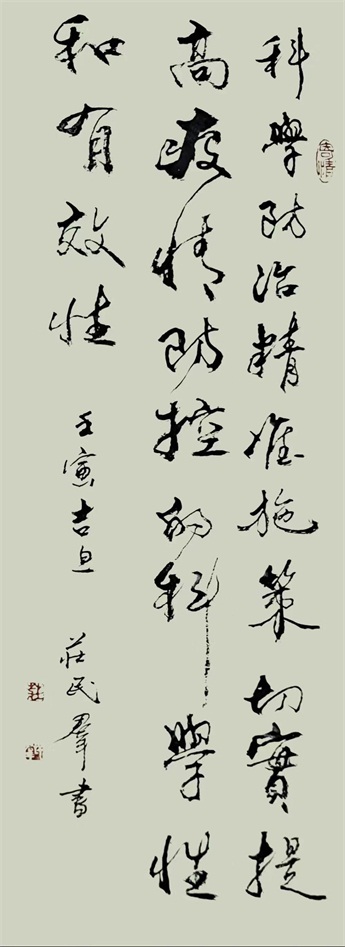 科學防治精准施策切實提
高疫情防控的科學性
和有效性
壬寅吉旦
莊民羣書